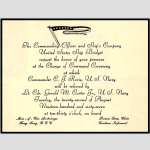 The Commanding Officer and Ship's Company
United States Ship Bridget
request the honor of your presence
at the Change of Command Ceremony
at which
Commander C. J. Horn, U.S. Navy
will be relieved by
Lt. Cdr. Gerald W. Carter Jr., U.S. Navy
Tuesday, the twenty-second of August
Nineteen hundred and sixty-seven
at ten-thirty o'clock, on board
Man of War Anchorage
Hong Kong, B.C.C.
Service Dress White
Uniform